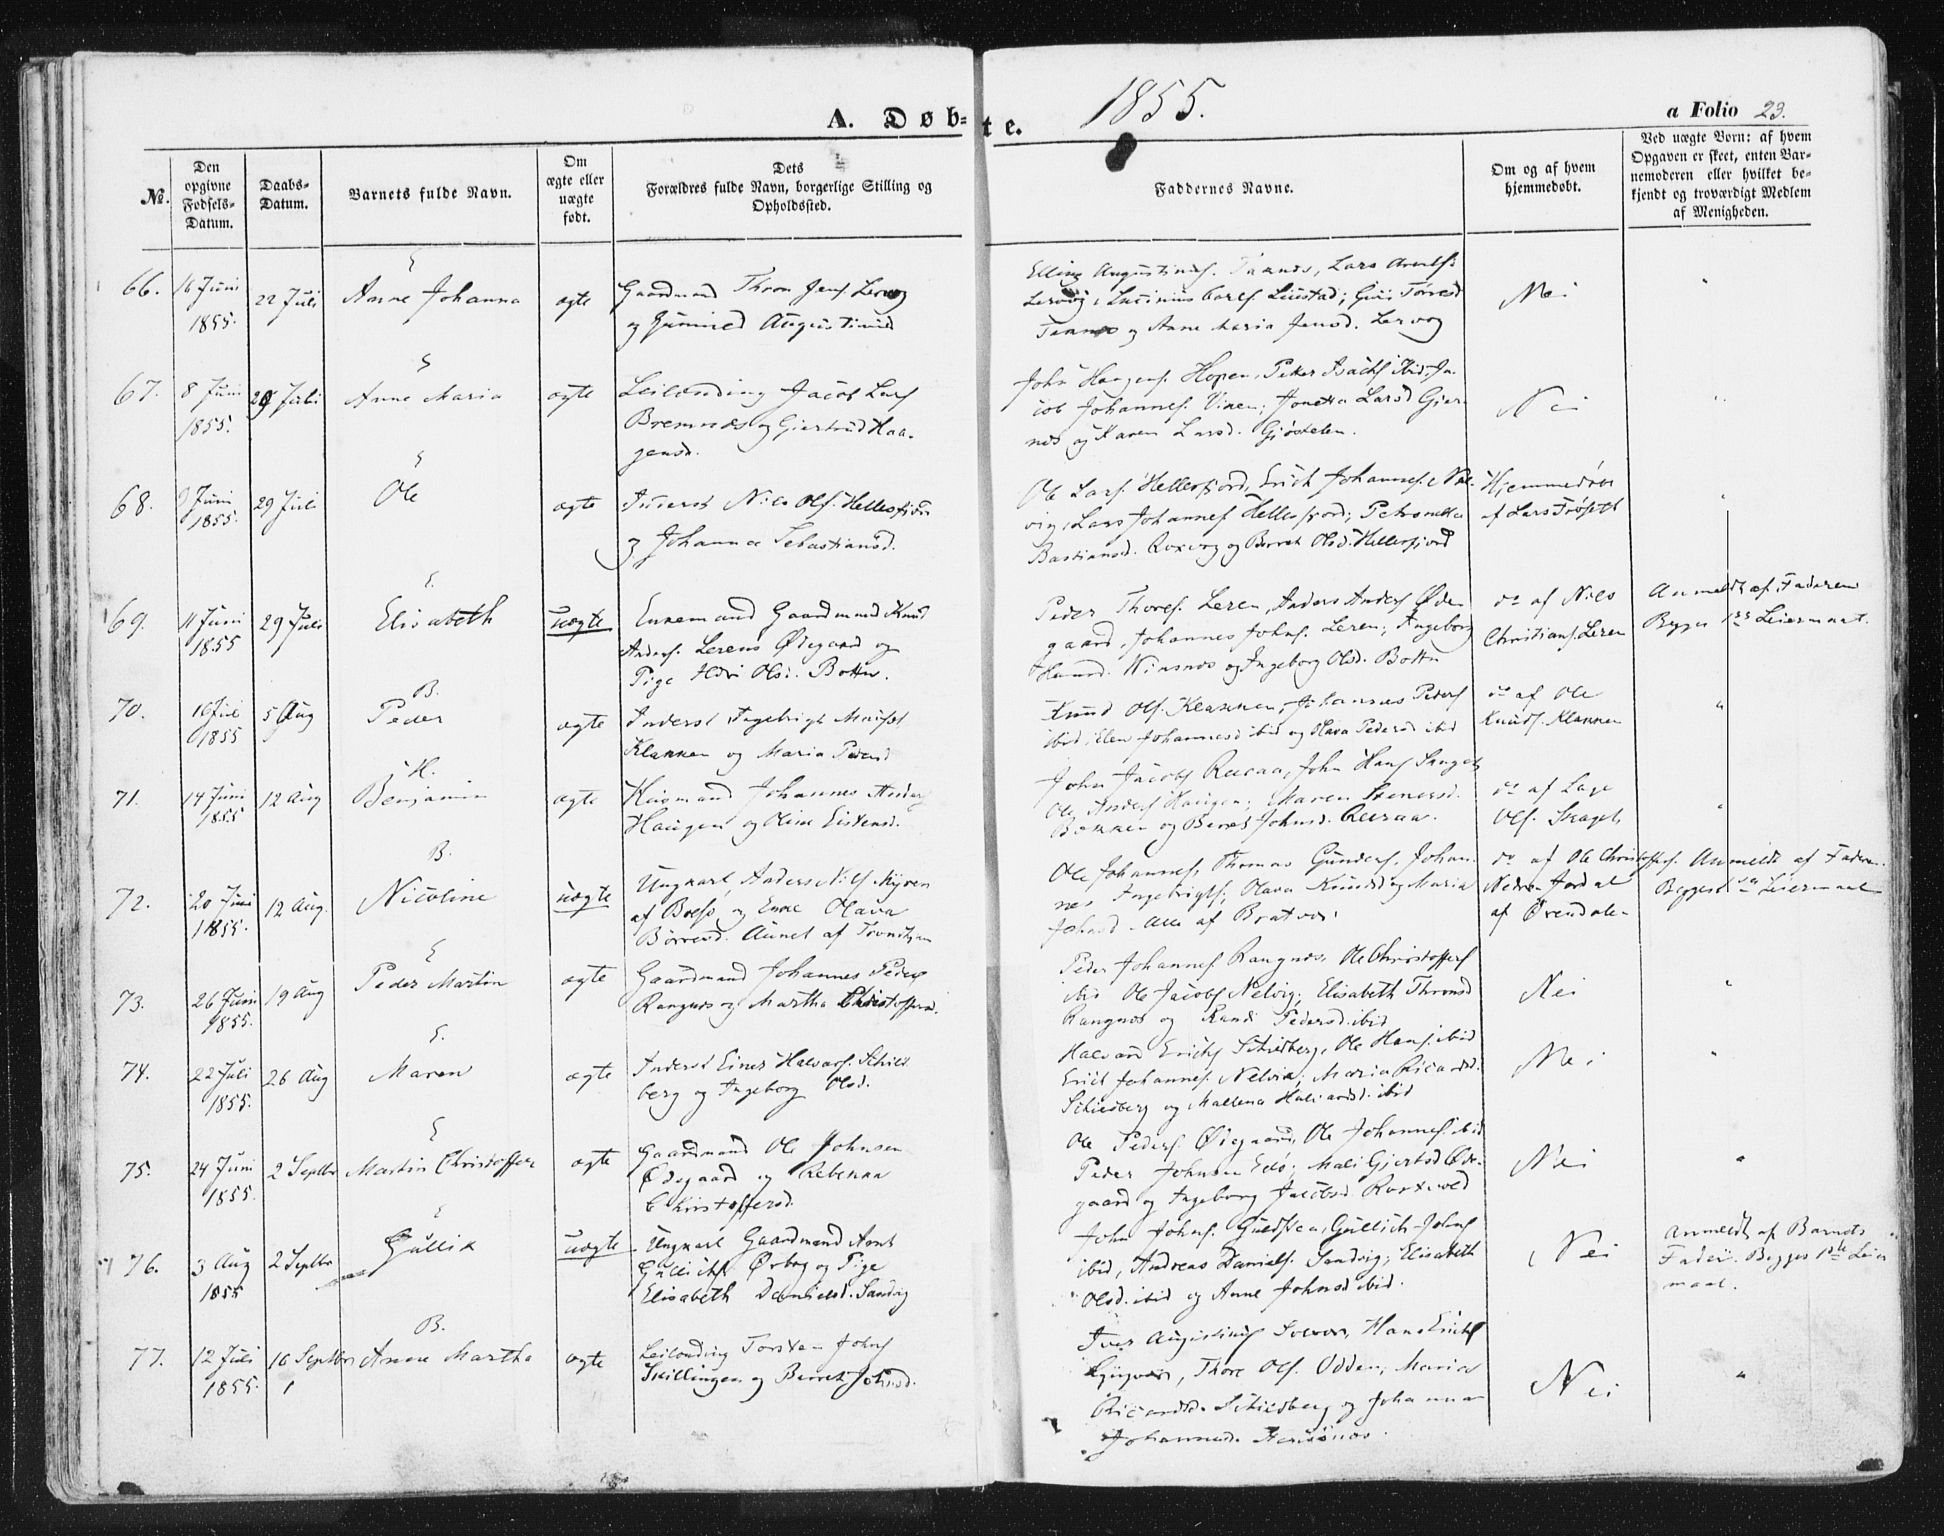 A. Døbte. 1855. a Folio 23.
No.
Den opgivne Fødsels-Datum.
Daabs-Datum.
Barnets fulde Navn.
Om ægte eller uægte født.
Dets Forældres fulde Navn, borgerlige Stilling og Opholdssted.
Faddernes Navne.
Om og af hvem hjemmedøbt.
Ved uægte Børn: af hvem Opgaven er skeet, enten Barnemoderen eller hvilket bekjendt og troværdigt Medlem af Menigheden.
66. 16 Juni 1855. 22 Juli
E
Anne Johanna ægte
Gaardmand Thron Jens Lervog
og Gunnild Augustinusd
Elling Augustinus. Taknes, Lars Arntss
Lervog, Lucinius Carls Leirstad; Guri Torresd
Taknes og Anne Maria Jensd. Lervog
Nei
67. 8 Juni 1855. 29 Juli
E
Anne Maria ægte
Leilending Jacob Lars
Bremnes og Giertrud Haa-
gensd.
John Haagens. Hopen, Peter Isachs ibid, Ja-
cob Johannes. Viken; Larsd Gjer-
nes og Karen Larsd. Gjøstelen.
Nei
68. 9 Juni 1855. 29 Juli
E
Ole ægte
Inderst Nils Ols. Hellesfjord
og Johanna Sebastiansd.
Ole Lars. Hellesfjord, Erich Johannes. Nel-
vig, Lars Johannes Hellesfjord; Petronella
Bastiansd. Roxvog og Berret Olsd. Hellesfjord
Hjemmedøbt
af Lars Frøseth
69. 11 Juni 1855 29 Juli
E.
Elisabeth uægte
Enkemand Gaardmand Knud
Anders. Lerens Ødegaard og
Pige Olsd. Botten.
Peder Thores. Leren, Anders Anders Øde-
gaard, Johannes Johns. Leren; Ingeborg
Haard. Vinsnes og Ingeborg Olsd. Botten
do af Nils
Christians. Leren
Anmeldt af Faderen
Begges 1ste Leiermaal.
70. 16 Juli 1855 5 Aug
B.
Peder ægte
Inderst Ingebrigt
Klakken og Maria Pedersd
Knud Ols. Klakken, Johannes Peders
ibid, Elen Johannesd ibid og Olava Pedersd ibid
do af Ole
Knuds. Klakken
71. 14 Juni 1855 12 Aug
H.
Benjamin ægte
Huusmand Johannes Anders
Haugen og Oline Eistensd.
John Jacobs Reesaa, John Hans Skaget,
Ole Anders Haugen; Maren Steners.
Bakken og Beret Johnsd. Reesaa.
do af Lage
Ols. Skaget,
72. 20 Juni 1855. 12 Aug.
B.
Nicoline uægte
Ungkarl Anders Nils Myren
af og Enke Olava
Børresd. Aunet af
Ole Johannes, Thomas Gunders, Johan-
nes Ingebrigts; Olava Knudsd og Maria
Johnsd. Alle af Bratvær.
do af Ole Christoffers.
Nedre Jordal
af Ørendale.
Anmeldt af Faderen.
Begges 1ste Leiermaal
73. 26 Juni 1855. 19 Aug
E
Peder Martin ægte
Gaardmand Johannes Peders
Rangnes og Martha Christoffersd.
Peder Johannes Rangnes. Ole Christoffers
ibid Ole Jacobs Nelvig; Elisabeth Thronsd
Rangnes og Randi Pedersd. ibid
Nei
74. 22 Juli 1855. 26 Aug
E.
Maren ægte
Inderst Einer Halvors. Schied-
berg og Ingeborg Olsd.
Halvard Erichs Schiedberg, Ole Hans. ibid
Erich Johannes. Nelvik; Maria Ricardsd.
Schiedberg og Mallena Halvardsd. ibid
Nei
75. 24 Juni 1855. 2 Septbr
E
Martin Christoffer ægte
Gaardmand Ole Johnsen
Ødegaard og Rebekka
Christoffersd.
Ole Peders. Ødegaard, Ole Johannes. ibid
Peder Johnsen Edø; Mali Gjertsd Øde-
gaard og Ingeborg Jacobsd. Roxvold
Nei
76. 3 Aug 1855 2 Septbr
E
Gullik uægte
Ungkarl Gaardmand Arnt
Gullichs. Ørbog og Pige
Elisabeth Danielsd. Sandvig
John Johns. Guldsten, Gullich Johns
ibid, Andreas Daniels. Sandvig; Elisabeth
Olsd. ibid og Anne Johnsd ibid.
Nei
Anmeldt af Barnets
Fader. Begges 1ste Leier-
maal.
77. 12 Juli 1855. 16 Septbr
B.
Anne Martha ægte
Leilending Torsten Johns
Skillingen og Berret Johnsd.
Iver Augustinus , Hans Erichs
, Thore Ols. Odden; Maria
Ricardsd. Schiedberg og Johanna
Johannesd.
Nei